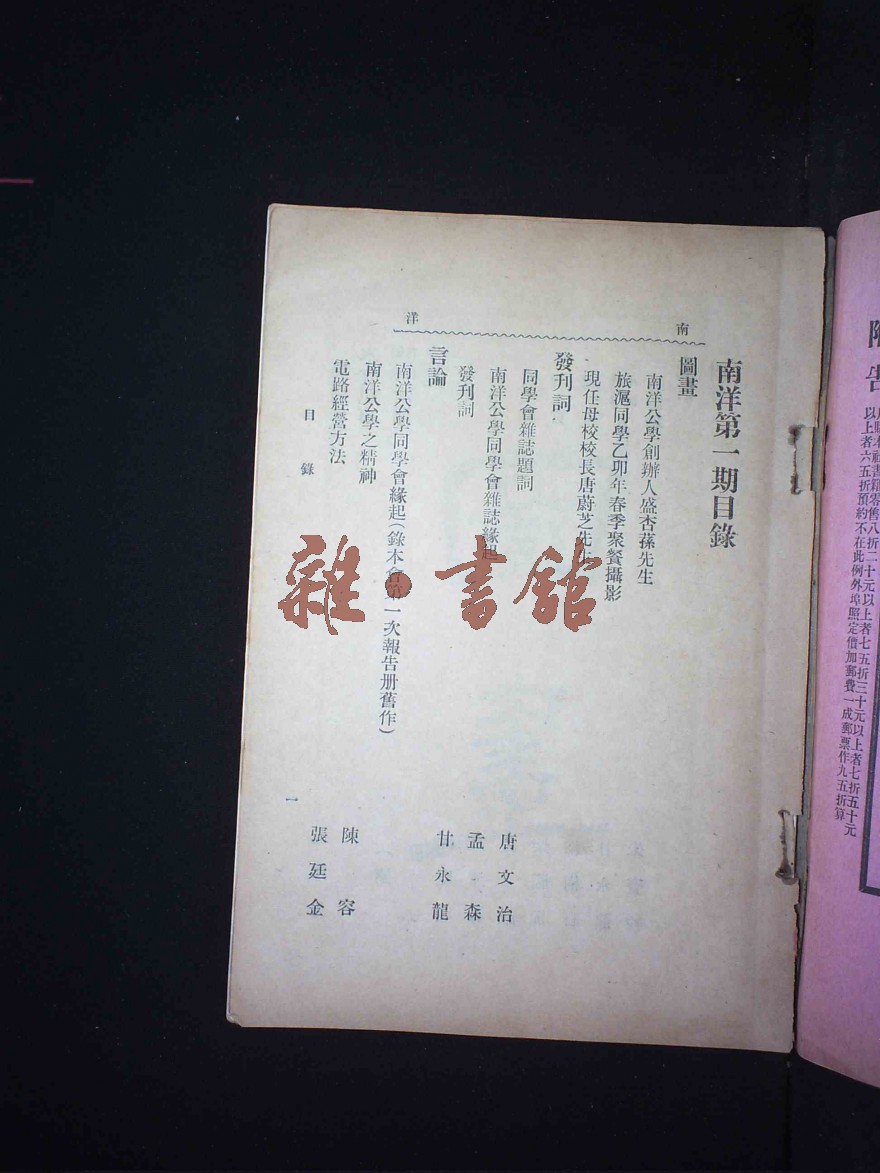 附告
以上者六五折預約不在此例外埠照定價加郵費一成郵票作九五折算
南洋第一期目錄
南洋
圖畫
南洋公學創辦人盛杏蓀先生
旅滬同學乙卯年春季聚餐攝影
現任母校校長唐蔚芝先生
發刊詞
同學會雜誌題詞 唐文治
南洋公學同學會雜誌緣起 孟森
發刊詞 甘永龍
言論
南洋公學同學會緣起(錄本會第一次報告册舊作)
南洋公學之精神 陳容
電路經營方法 張廷金
目錄
一
雜·書館